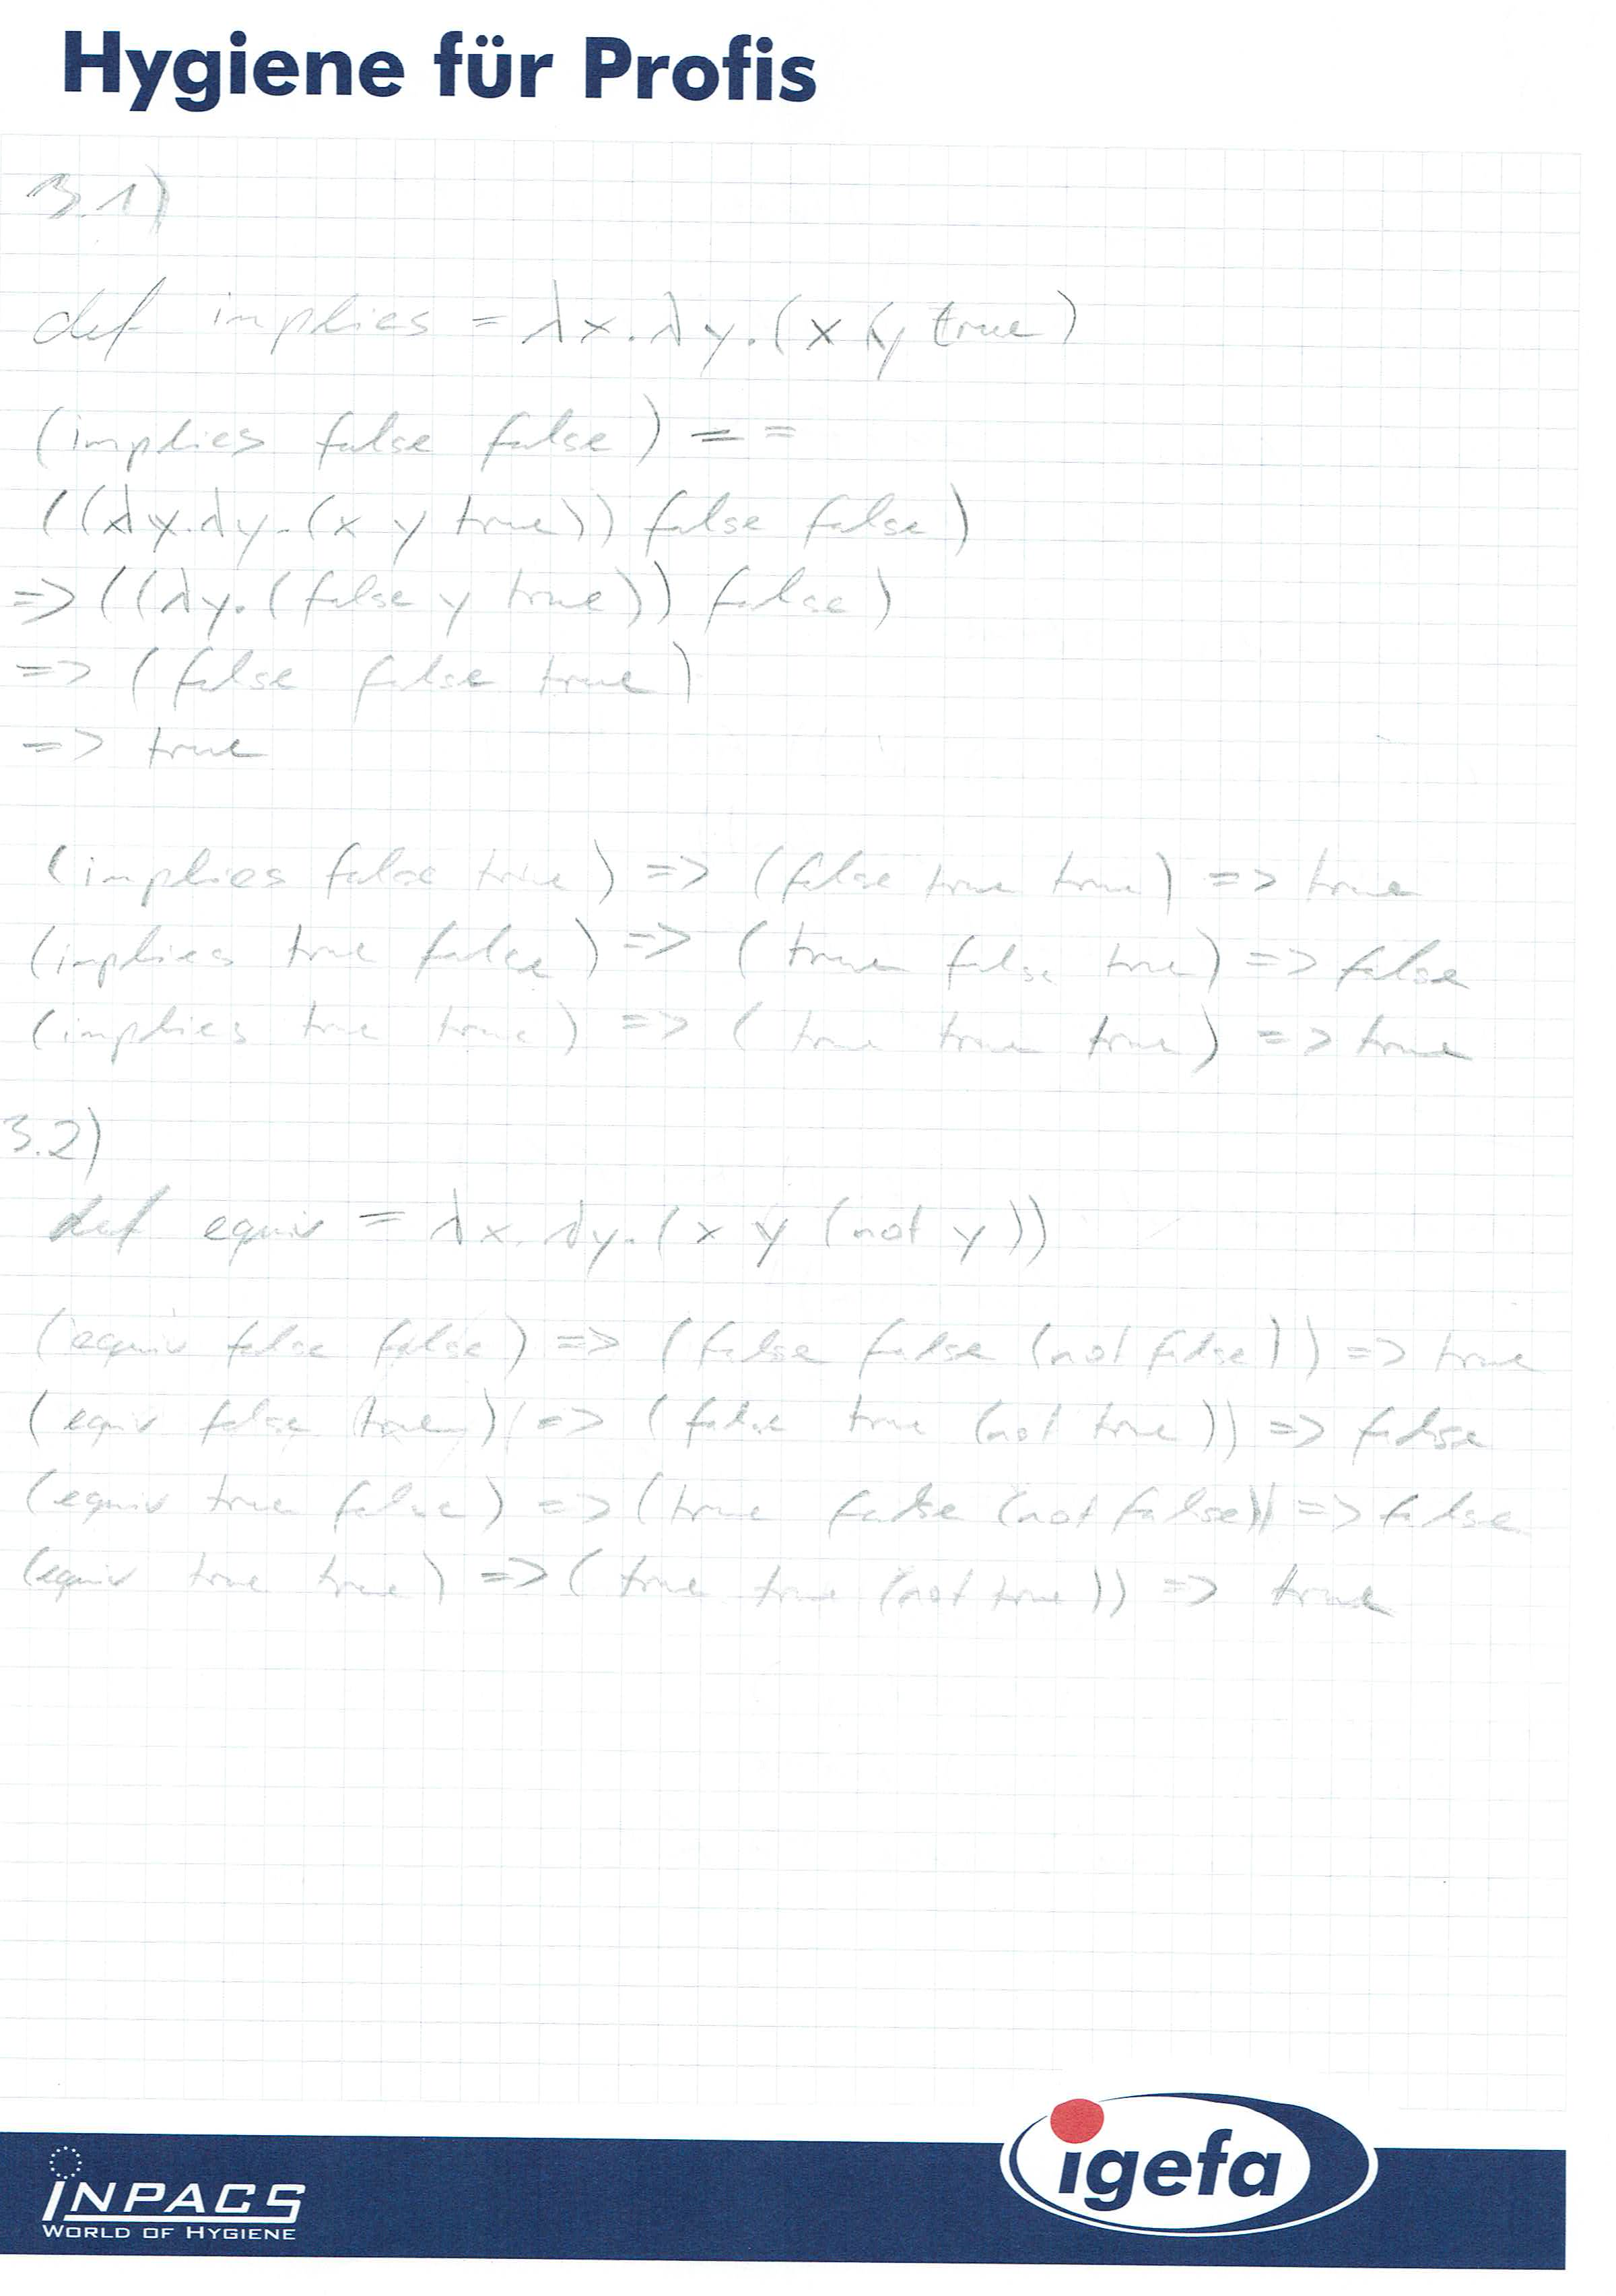 Hygiene für Profis
3.1)
def implies = λx.λy.(x y true)
(implies false false) ==
((λy.λy.(x y true)) false false)
=> ((λy.(false y true)) false)
=> (false false true)
=> true
(implies false true) => (false true true) => true
(implies true false) => (true false true) => false
(implies true true) => (true true true) => true
3.2)
def equiv = λx.λy.(x y (not y))
(equiv false false) => (false false (not false)) => true
(equiv false true) => (false true (not true)) => false
(equiv true false) => (true false (not false)) => false
(equiv true true) => (true true (not true)) => true
igefa
INPACS
WORLD OF HYGIENE